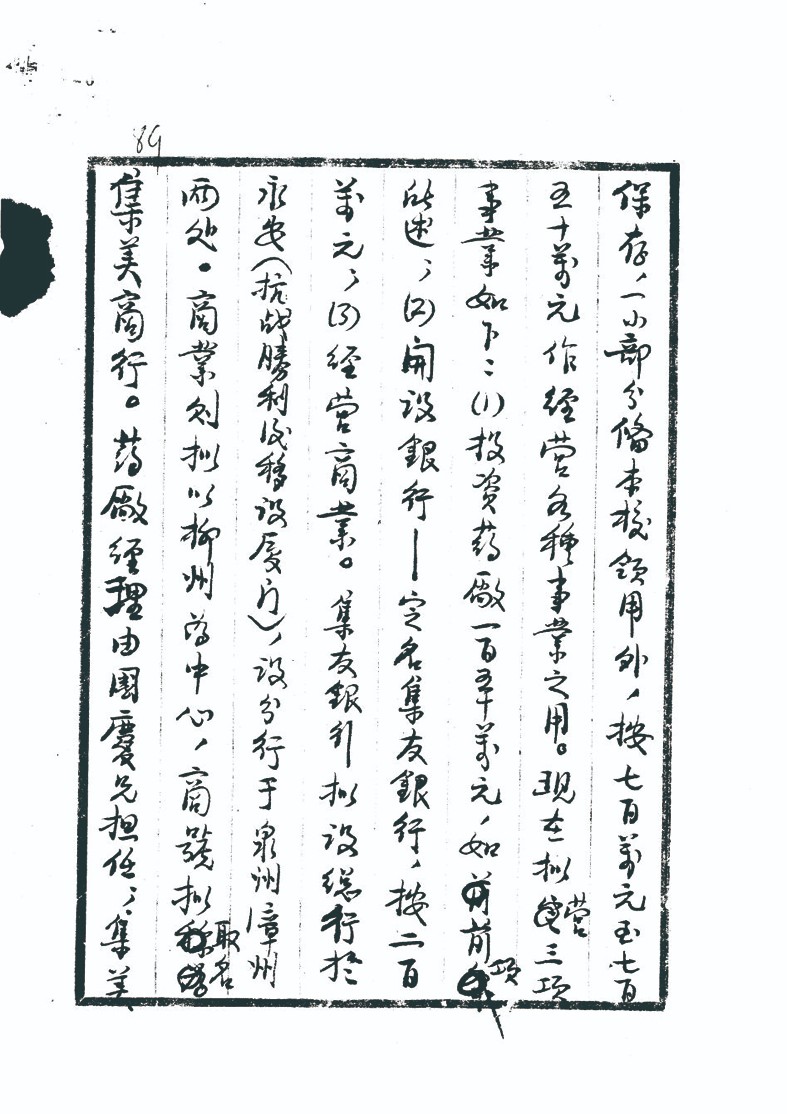 89
保存，一小部分備本校領用外，按七百萬元至七百
五十萬元作經营各種事業之用。現在拟营三項
事業如下：(1)投資葯廠一百五十萬元，如前項
所述；(2)開設銀行—定名集友銀行，按二百
萬元；(3)經营商業。集友銀行拟设總行於
永安（抗战勝利後移设厦门），设分行于泉州漳州
兩处。商業则拟以柳州為中心，商號拟取名
集美商行。葯廠經理由國慶兄担任；集美